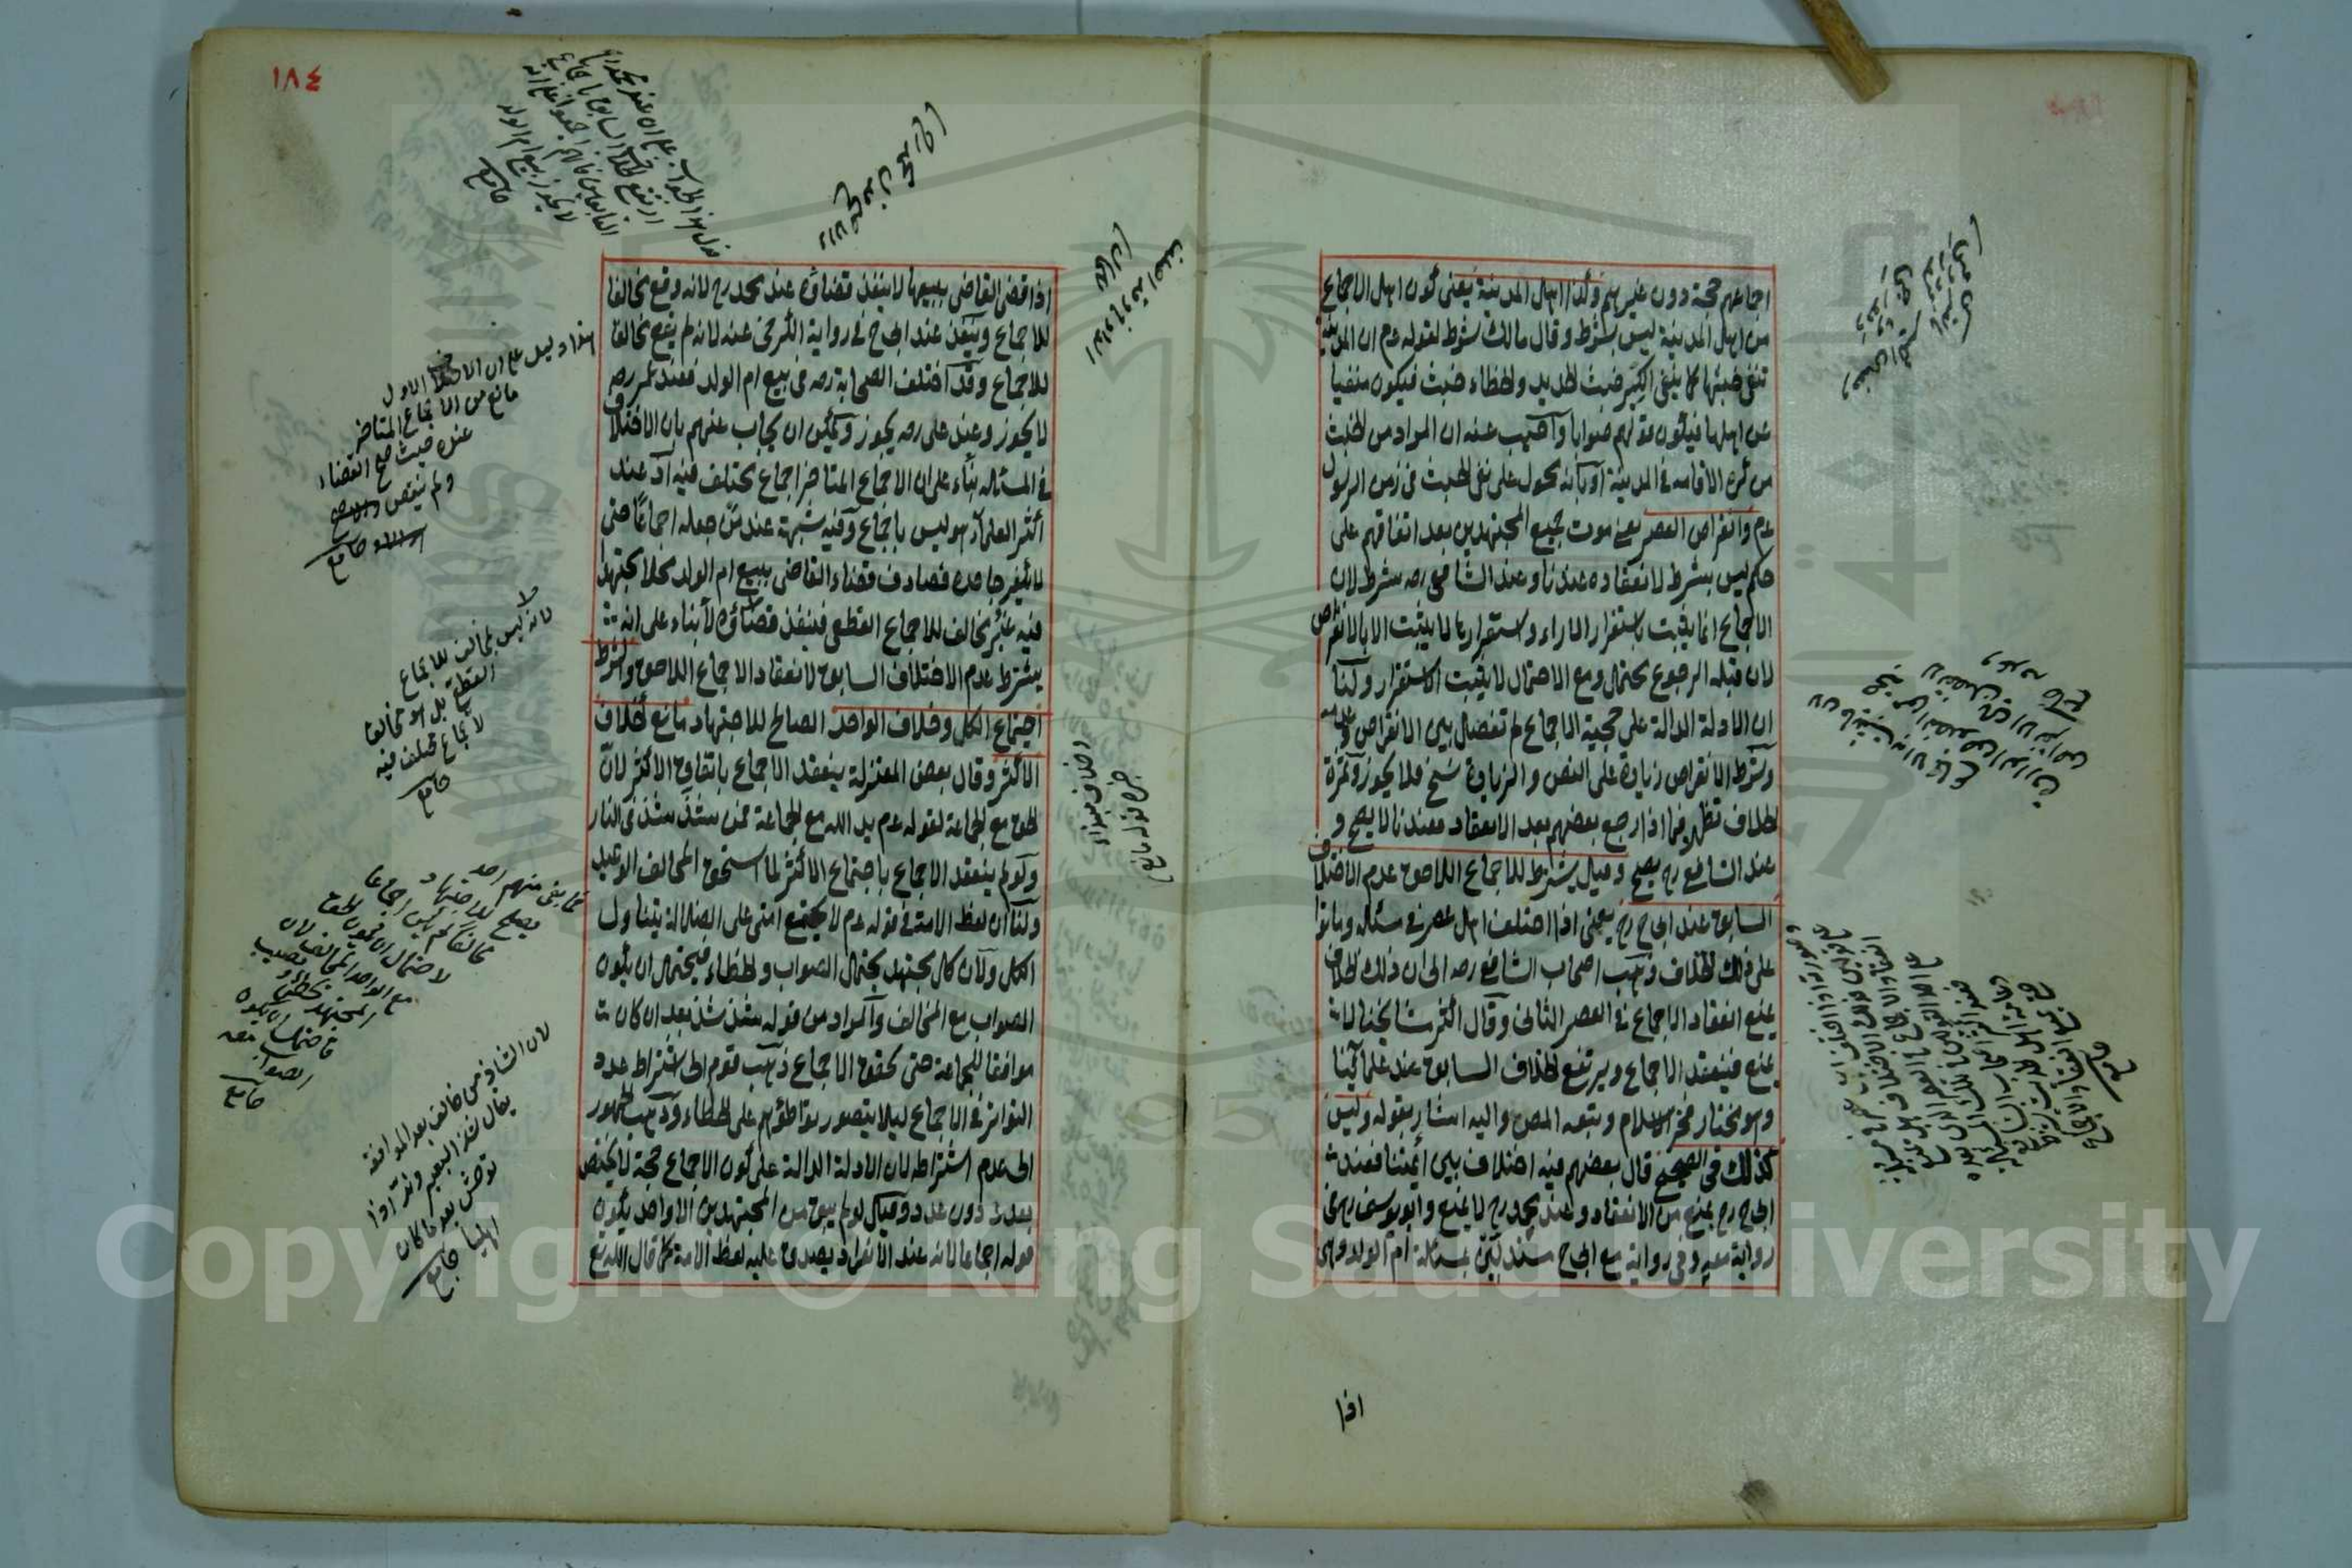 اجماعهم حجة دون غيرهم وكذا اهل المدينة يعنى كون اهل الاجماع
من اهل المدينة ليس بشرط وقال مالك شرط لقوله عم ان المدينة
تنفى خبثها كما ينفى الكير خبث الحديد والخطاء خبث فيكون منفيا
عن اهلها فيكون قولهم صوابا واجيب عنه ان المراد من الخبث
من كره الاقامة فى المدينة او بانه محمول على نفى الخبث فى زمن الرسول
عم وانقراض العصر يعنى موت جميع المجتهدين بعد اتفاقهم على
حكم ليس بشرط لانعقاده عندنا وعند الشافعى رحه شرط لان
الاجماع انما يثبت باستقرار الاراء واستقرارها لا يثبت الا بالانقراض
لان قبله الرجوع محتمل ومع الاحتمال لا يثبت الاستقرار ولنا
ان الادلة الدالة على حجية الاجماع لم تفصل بين الانقراض وعدمه
وشرط الانقراض زيادة على النص والزيادة نسخ فلا يجوز وثمرة
الخلاف تظهر فيما اذا رجع بعضهم بعد الانعقاد فعندنا لا يصح و
عند الشافعى رح يصح وقيل يشترط للاجماع اللاحق عدم الاختلاف
السابق عند ابى ح رح يعنى اذا اختلف اهل عصر فى مسئلة وماتوا
على ذلك الخلاف ذهب اصحاب الشافعى رحه الى ان ذلك الخلاف
يمنع انعقاد الاجماع فى العصر الثانى وقال اكثر مشايخنا لا
يمنع فينعقد الاجماع ويرتفع الخلاف السابق عند علمائنا
وهو مختار فخر الاسلام وتبعه المص واليه اشار بقوله وليس
كذلك فى الصحيح قال بعضهم فيه اختلاف بين ائمتنا فعند
ابى ح رح يمنع من الانعقاد وعند محمد رح لا يمنع وابو يوسف رح فى
رواية معه وفى رواية مع ابى ح مستدلين بمسئلة ام الولد وهى
اذا
١٨٤
اذا قضى القاضى ببيعها لا ينفذ قضاؤه عند محمد رح لانه وقع مخالفا
للاجماع وينفذ عند ابى ح فى رواية الكرخى عنه لانه لم يقع مخالفا
للاجماع وقد اختلف الصحابة رضه فى بيع ام الولد فعند عمر رضه
لا يجوز وعند على رضه يجوز ويمكن ان يجاب عنهم بان الاختلاف
فى المسئلة بناء على ان الاجماع المتاخر اجماع مختلف فيه اذ عند
اكثر العلماء هو ليس باجماع وفيه شبهة عند من جعله اجماعا حتى
لا يكفر جاحده فصادف قضاء القاضى ببيع ام الولد محلا مجتهدا
فيه غير مخالف للاجماع القطعى فينفذ قضاؤه لا بناء على انه
يشترط عدم الاختلاف السابق لانعقاد الاجماع اللاحق والشرط
اجتماع الكل وخلاف الواحد الصالح للاجتهاد مانع كخلاف
الاكثر وقال بعض المعتزلة ينعقد الاجماع باتفاق الاكثر لان
الحق مع الجماعة لقوله عم يد الله مع الجماعة فمن شذ شذ فى النار
ولو لم ينعقد الاجماع باجتماع الاكثر لما استحق المخالف الوعيد
ولنا ان لفظ الامة فى قوله عم لا يجتمع امتى على الضلالة يتناول
الكل ولان كل مجتهد يحتمل الصواب والخطاء فيحتمل ان يكون
الصواب مع المخالف والمراد من قوله شذ شذ بعد ان كان
موافقا للجماعة حتى تحقق الاجماع ذهب قوم الى اشتراط عدد
التواتر فى الاجماع ليلا يتصور تواطؤهم على الخطاء وذهب الجمهور
الى عدم اشتراطه لان الادلة الدالة على كون الاجماع حجة لا يختص
بعدد دون عدد وقيل لو لم يبق من المجتهدين الا واحد يكون
قوله اجماعا لانه عند الانفراد يصدق عليه لفظ الامة كما قال الله تع
هذا دليل على ان الاختلاف الاول
مانع من الاجماع المتاخر
عنده حيث صح القضاء
ولم ينقض
لانه ليس بمخالف للاجماع
القطعى بل هو مخالف
لاجماع مختلف فيه
فما بقى منهم احد
يصلح للاجتهاد
مخالفا لم يكن اجماعا
لاحتمال ان يكون الحق
مع الواحد المخالف لان
المجتهد يخطئ ويصيب
فاحتمل ان يكون
الصواب معه
لان الشاذ من خالف بعد الموافقة
يقال شذ البعير وند اذا
توحش بعد ما كان
اهليا
Copyright © King Saud University